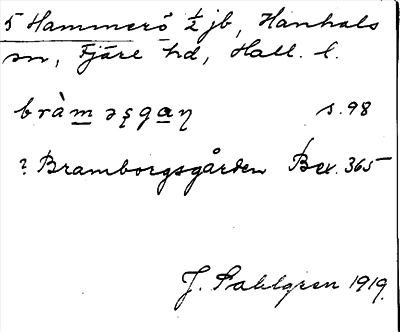 5 Hammerö ½ jb, Hanhals
sn, Fjäre hd, Hall. l.
bràm əşgaŋ s. 98
? Bramborgsgården Bex. 365
J. Sahlgren 1919.